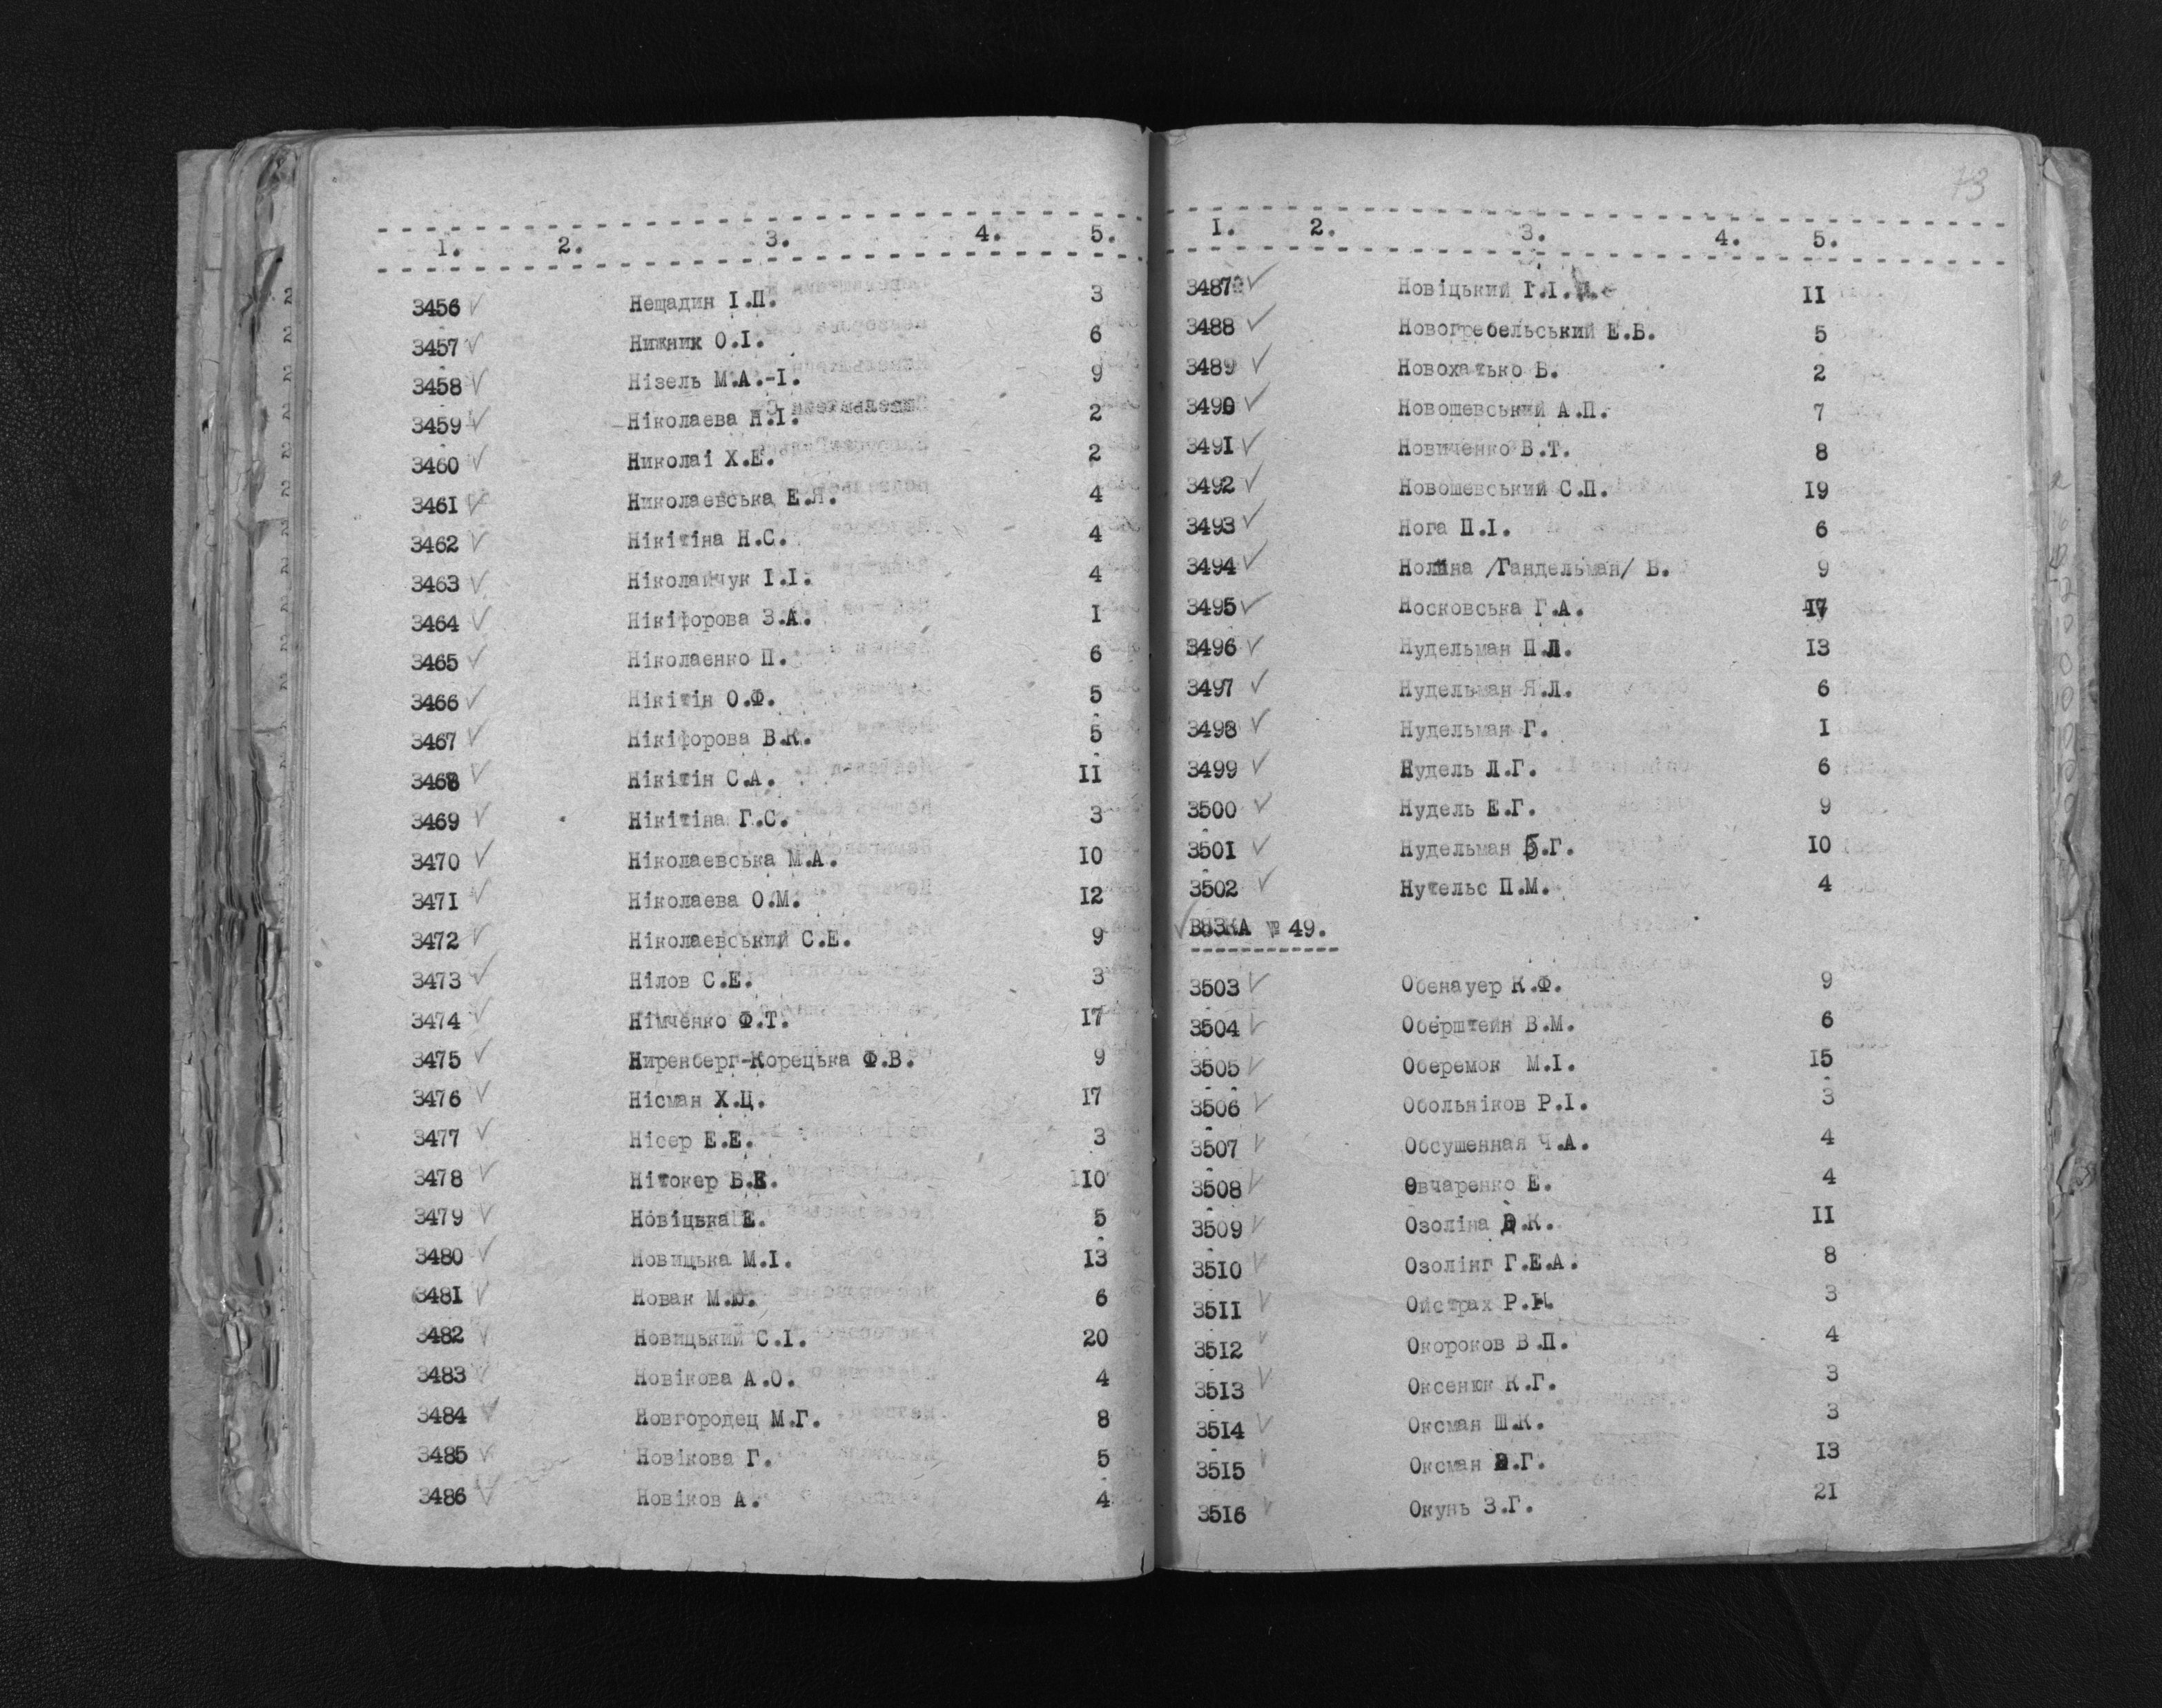 1. 2. 3. 4. 5.
3456 Нещадин І.П. 3
3457 Нижник О.І. 6
3458 Нізель М.А.-І. 9
3459 Ніколаева Н.І. 2
3460 Николаі Х.Е. 2
3461 Николаевська Е.Я. 4
3462 Нікітіна Н.С. 4
3463 Ніколайчук І.І. 4
3464 Нікіфорова З.А. І
3465 Ніколаенко П. 6
3466 Нікітін О.Ф. 5
3467 Нікіфорова В.К. 5
3468 Нікітін С.А. ІІ
3469 Нікітіна Г.С. 3
3470 Ніколаевська М.А. 10
3471 Ніколаева О.М. 12
3472 Ніколаевський С.Е. 9
3473 Нілов С.Е. 3
3474 Німченко Ф.Т. 17
3475 Ниренберг-Корецька Ф.В. 9
3476 Нісман Х.Ц. 17
3477 Нісер Е.Е. 3
3478 Нітокер 110
3479 Новіцька Е. 5
3480 Новицька М.І. 13
3481 Новак М.Ю. 6
3482 Новицький С.І. 20
3483 Новікова А.О. 4
3484 Новгородец М.Г. 8
3485 Новікова Г. 5
3486 Новіков А. 4
73
І. 2. 3. 4. 5.
3487 Новіцький І.І. ІІ
3488 Новогребельський Е.В. 5
3489 Новохатько В. 2
3490 Новошевський А.П. 7
3491 Новиченко В.Т. 8
3492 Новошевський С.П. 19
3493 Нога П.І. 6
3494 /Гандельман/ В. 9
3495 Носковська Г.А. 17
3496 Нудельман П.Л. 13
3497 Нудельман Я.Л. 6
3498 Нудельман Г. І
3499 Нудель Л.Г. 6
3500 Нудель Е.Г. 9
3501 Нудельман Б.Г. 10
3502 Нутельс П.М. 4
ВЯЗКА № 49.
3503 Обенауер К.Ф. 9
3504 Оберштейн В.М. 6
3505 Оберемок М.І. 15
3506 Обольніков Р.І. 3
3507 Обсушенная Ч.А. 4
3508 Овчаренко Е. 4
3509 Озоліна К. ІІ
3510 Озолінг Г.Е.А. 8
3511 Ойстрах Р.Н. 3
3512 Окороков В.П. 4
3513 Оксенюк К.Г. 3
3514 Оксман Ш.К. 3
3515 Оксман Г. 13
3516 Окунь З.Г. 21